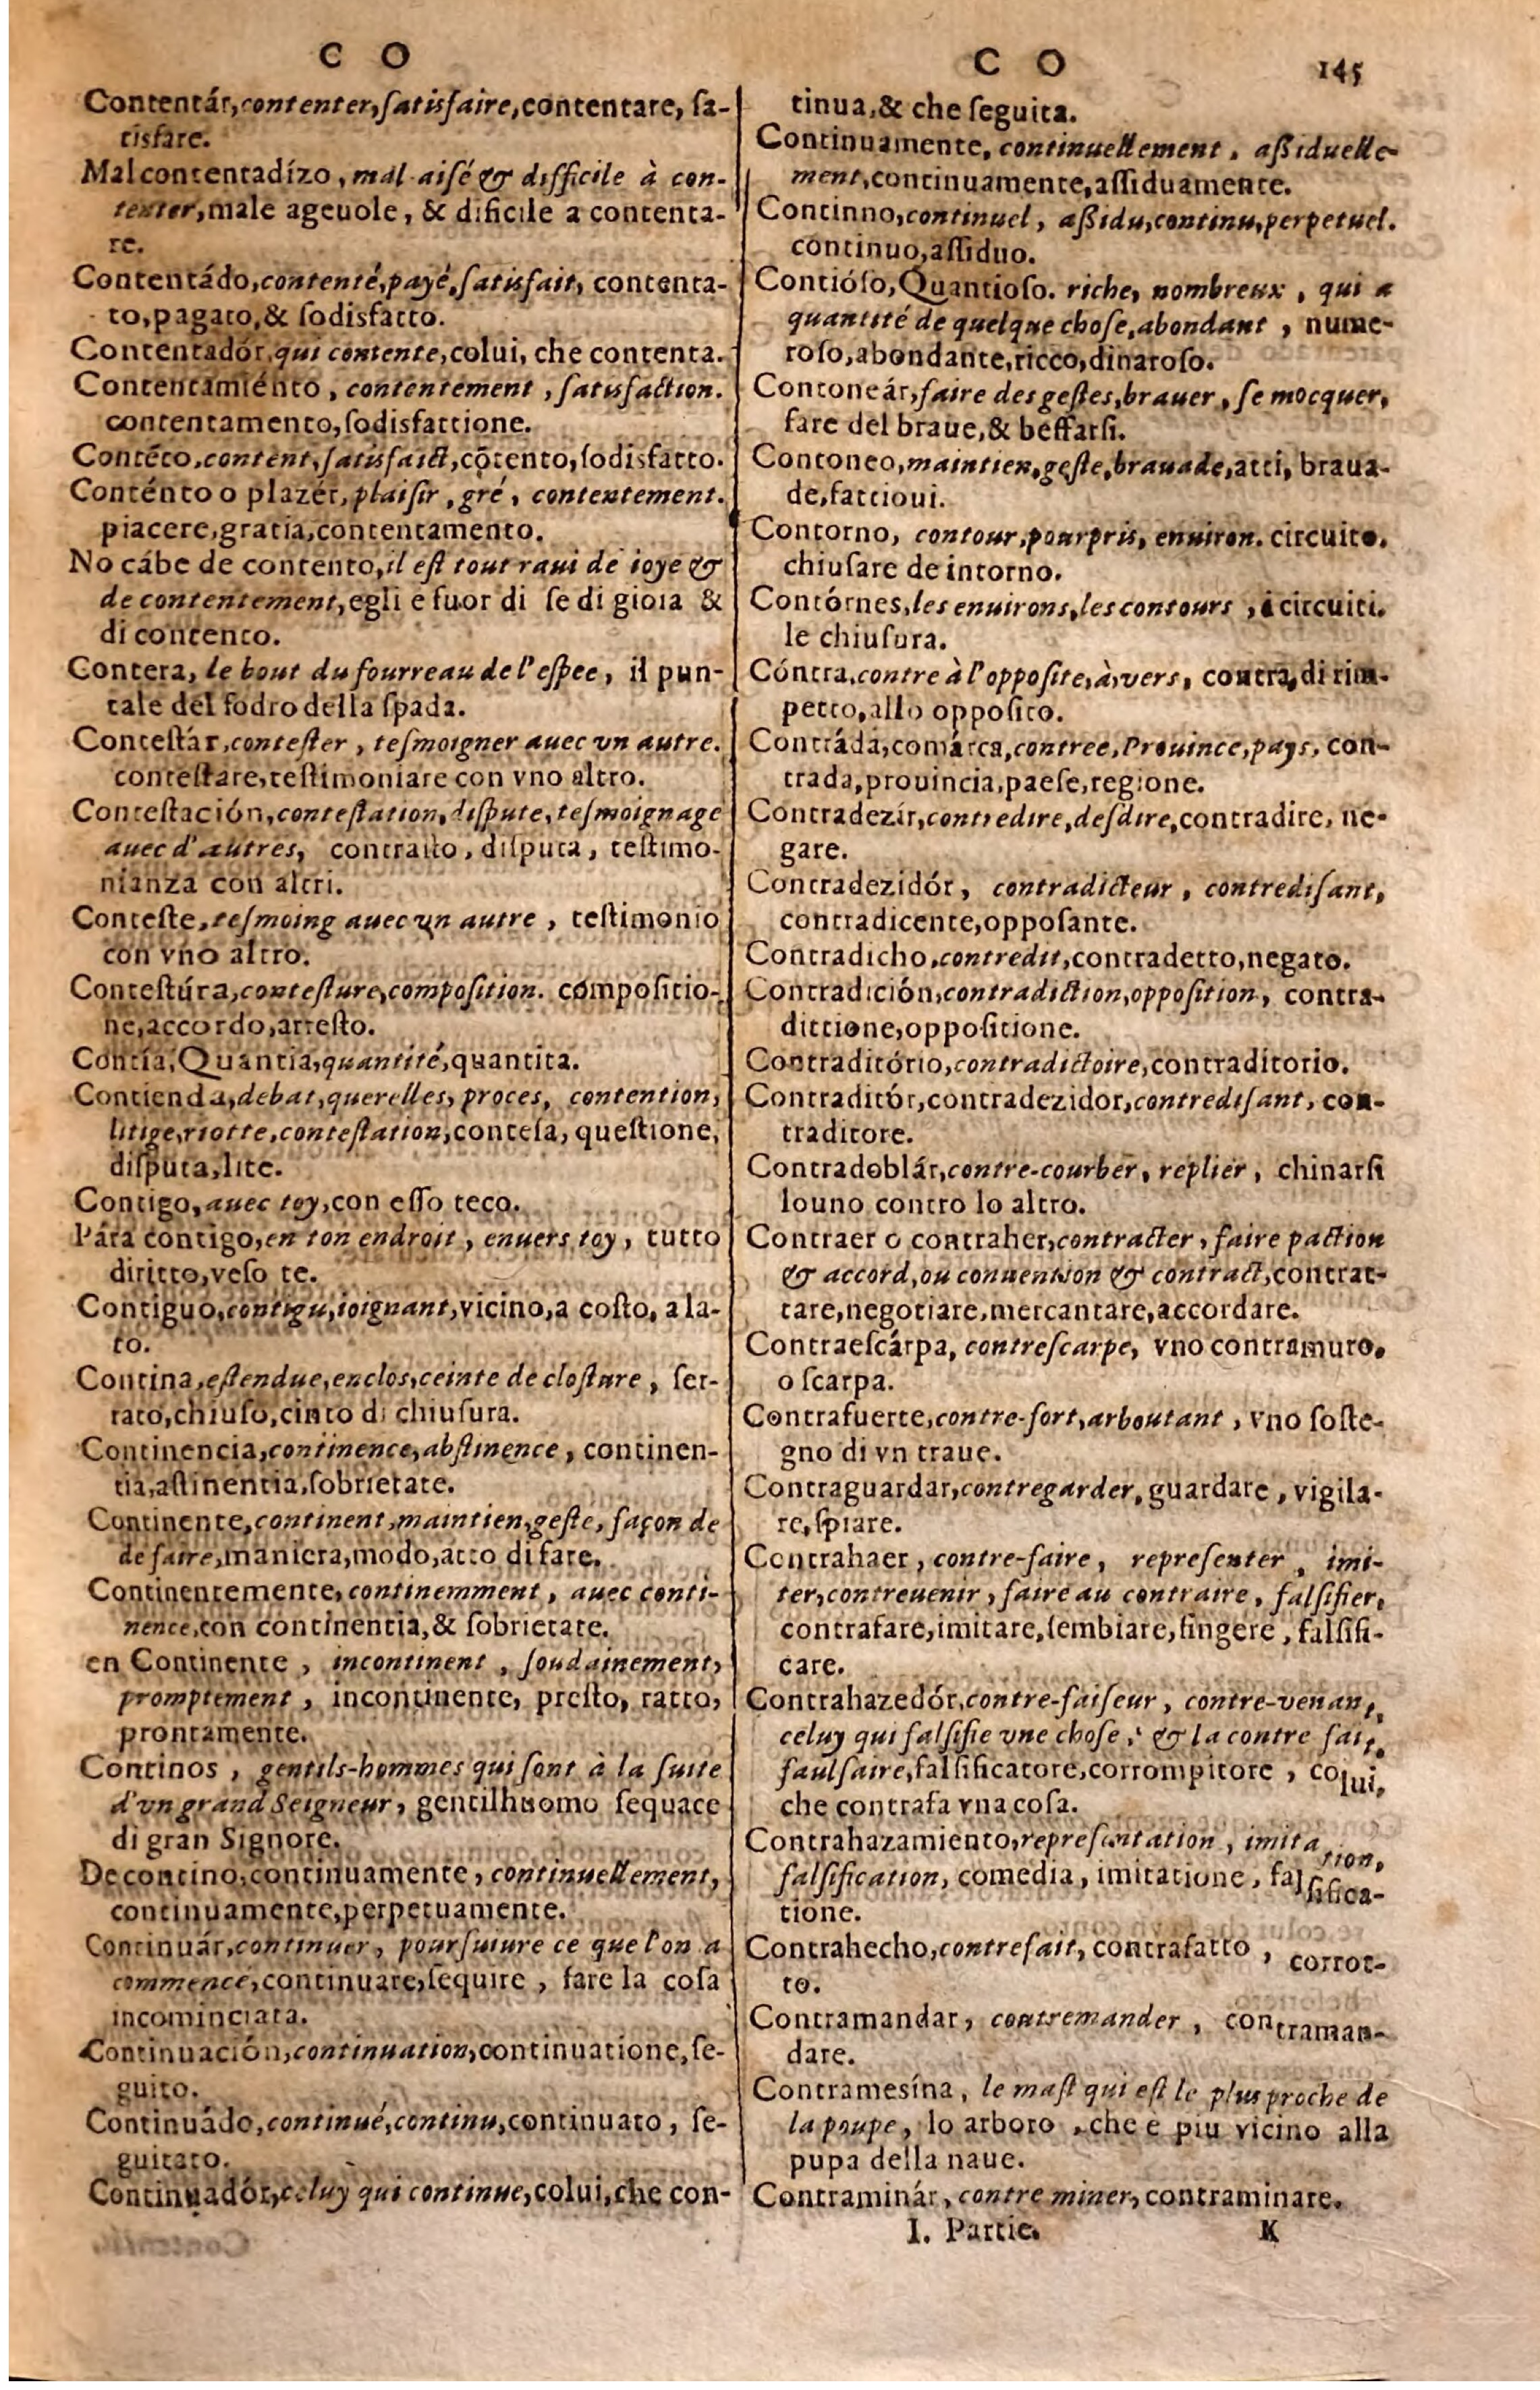 C O
Contentár, contenter, ſatisfaire, contentare, ſa-
tisfare.
Mal contentadízo, mal aisé & difficile à con-
tenter, male ageuole, & dificile a contenta-
re.
Contentádo, contenté, payé, ſatisfait, contenta-
to, pagato, & ſodisfatto.
Contentadór, qui contente, colui, che contenta.
Contentamiénto, contentement, ſatisfaction.
contentamento, ſodisfattione.
Contéto, content, ſatisfaict, cōtento, ſodisfatto.
Conténto o plazér, plaiſir, gré, contentement.
piacere, gratia, contentamento.
No cábe de contento, il eſt tout raui de ioye &
de contentement, egli e fuor di ſe di gioia &
di contento.
Contera, le bout du fourreau de l'eſpee, il pun-
tale del fodro della ſpada.
Conteſtár, conteſter, teſmoigner auec vn autre.
conteſtare, teſtimoniare con vno altro.
Conteſtación, conteſtation, diſpute, teſmoignage
auec d'autres, contraſto, diſputa, teſtimo-
nianza con altri.
Conteſte, teſmoing auec vn autre, teſtimonio
con vno altro.
Conteſtúra, conteſture, compoſition. compoſitio-
ne, accordo, arreſto.
Contía, Quantia, quantité, quantita.
Contienda, debat, querelles, proces, contention,
litige, riotte, conteſtation, conteſa, queſtione,
diſputa, lite.
Contigo, auec toy, con eſſo teco.
Pára contigo, en ton endroit, enuers toy, tutto
diritto, veſo te.
Contiguo, contigu, ioignant, vicino, a coſto, a la-
to.
Contina, eſtendue, enclos, ceinte de cloſture, ſer-
rato, chiuſo, cinto di chiuſura.
Continencia, continence, abſtinence, continen-
tia, aſtinentia, ſobrietate.
Continente, continent, maintien, geſte, façon de
de faire, maniera, modo, atto di fare.
Continentemente, continemment, auec conti-
nence, con continentia, & ſobrietate.
en Continente, incontinent, ſoudainement,
promptement, incontinente, preſto, ratto,
prontamente.
Continos, gentils-hommes qui ſont à la ſuite
d'vn grand Seigneur, gentilhuomo ſequace
di gran Signore.
De contino, continuamente, continuellement,
continuamente, perpetuamente.
Continuár, continuer, pourſuiure ce que l'on a
commencé, continuare, ſequire, fare la coſa
incominciata.
Continuación, continuation, continuatione, ſe-
guito.
Continuádo, continué, continu, continuato, ſe-
guitato.
Continuadór, celuy qui continue, colui, che con-
C O 145
tinua, & che ſeguita.
Continuamente, continuellement, aßiduelle-
ment, continuamente, aſſiduamente.
Continno, continuel, aßidu, continu, perpetuel.
continuo, aſſiduo.
Contióſo, Quantioſo. riche, nombreux, qui a
quantité de quelque choſe, abondant, nume-
roſo, abondante, ricco, dinaroſo.
Contoneár, faire des geſtes, brauer, ſe mocquer,
fare del braue, & beffarſi.
Contoneo, maintien, geſte, brauade, atti, braua-
de, fattioui.
Contorno, contour, pourpris, enuiron. circuito.
chiuſare de intorno.
Contórnes, les enuirons, les contours, i circuiti.
le chiuſura.
Cóntra, contre à l'oppoſite, à, vers, contra, di rim-
petto, allo oppoſito.
Contráda, comárca, contree, Prouince, pays, con-
trada, prouincia, paeſe, regione.
Contradezír, contredire, deſdire, contradire, ne-
gare.
Contradezidór, contradicteur, contrediſant,
contradicente, oppoſante.
Contradicho, contredit, contradetto, negato.
Contradición, contradiction, oppoſition, contra-
dittione, oppoſitione.
Contraditório, contradictoire, contraditorio.
Contraditór, contradezidor, contrediſant, con-
traditore.
Contradoblár, contre-courber, replier, chinarſi
louno contro lo altro.
Contraer o contraher, contracter, faire paction
& accord, ou conuention & contract, contrat-
tare, negotiare, mercantare, accordare.
Contraeſcárpa, contreſcarpe, vno contramuro.
o ſcarpa.
Contrafuerte, contre-fort, arboutant, vno ſoſte-
gno di vn traue.
Contraguardar, contregarder, guardare, vigila-
re, ſpiare.
Contrahaer, contre-faire, repreſenter, imi-
ter, contreuenir, faire au contraire, falſifier,
contrafare, imitare, ſembiare, fingere, falſifi-
care.
Contrahazedór, contre-faiſeur, contre-venant,
celuy qui falſifie vne choſe, & la contre fait,
faulſaire, falſificatore, corrompitore, colui,
che contrafa vna coſa.
Contrahazamiento, repreſentation, imitation,
falſification, comedia, imitatione, falſifica-
tione.
Contrahecho, contrefait, contrafatto, corrot-
to.
Contramandar, contremander, contraman-
dare.
Contramesína, le maſt qui eſt le plus proche de
la poupe, lo arboro, che e piu vicino alla
pupa della naue.
Contraminár, contre miner, contraminare.
I. Partie. K